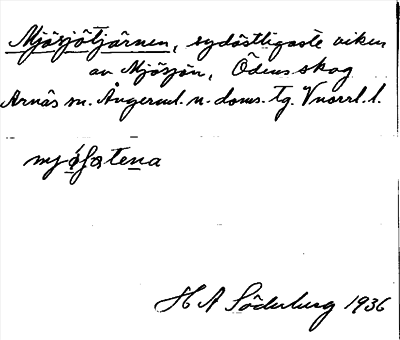 Mjösjötjärnen, sydöstligaste viken
av Mjösjön, Ödens skog
Arnäs sn. Ångerml. n. doms. tg. Vnorrl. l.
H A Söderberg 1936